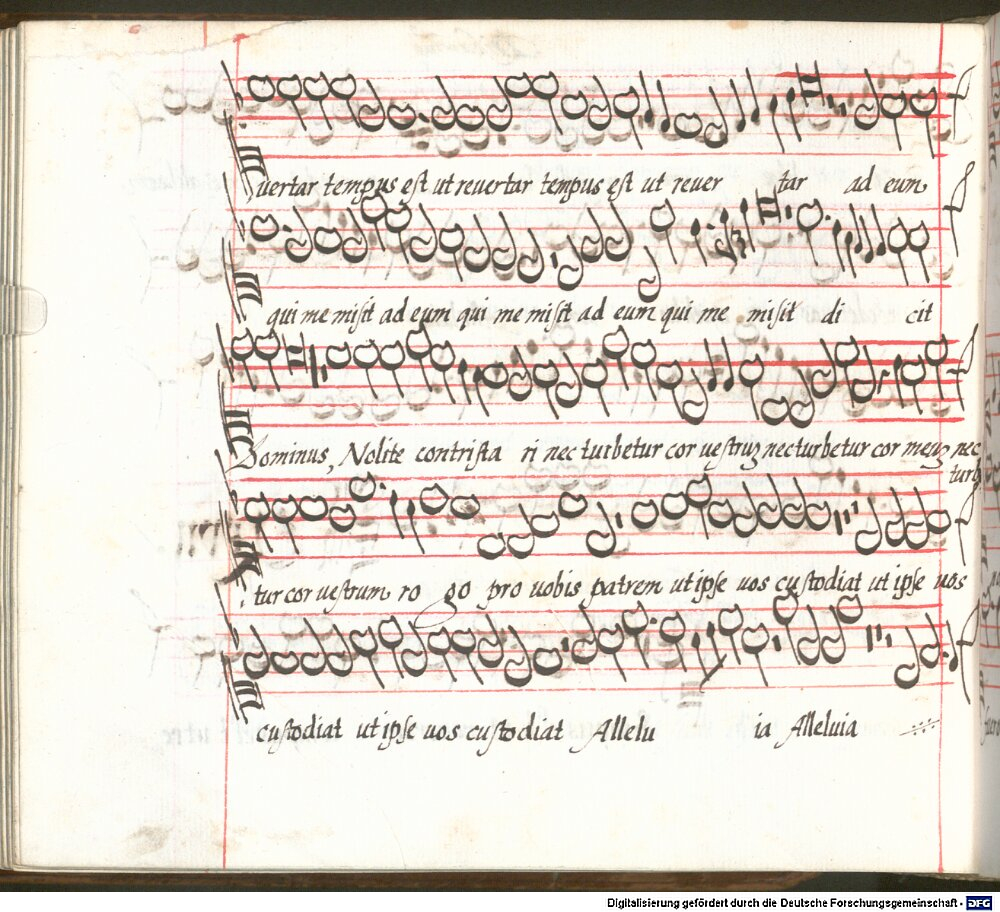 uertar tempus est ut reuertar tempus est ut reuer tar ad eum
qui me misit ad eum qui me misit ad eum qui me misit di cit
Dominus, Nolite contrista ri nec turbetur cor uestruʒ nec turbetur cor meuʒ nec
turbe
tur cor uestrum ro go pro uobis patrem ut ipse uos custodiat ut ipse uos
custodiat ut ipse uos custodiat Allelu ia Alleluia
Digitalisierung gefördert durch die Deutsche Forschungsgemeinschaft - DFG